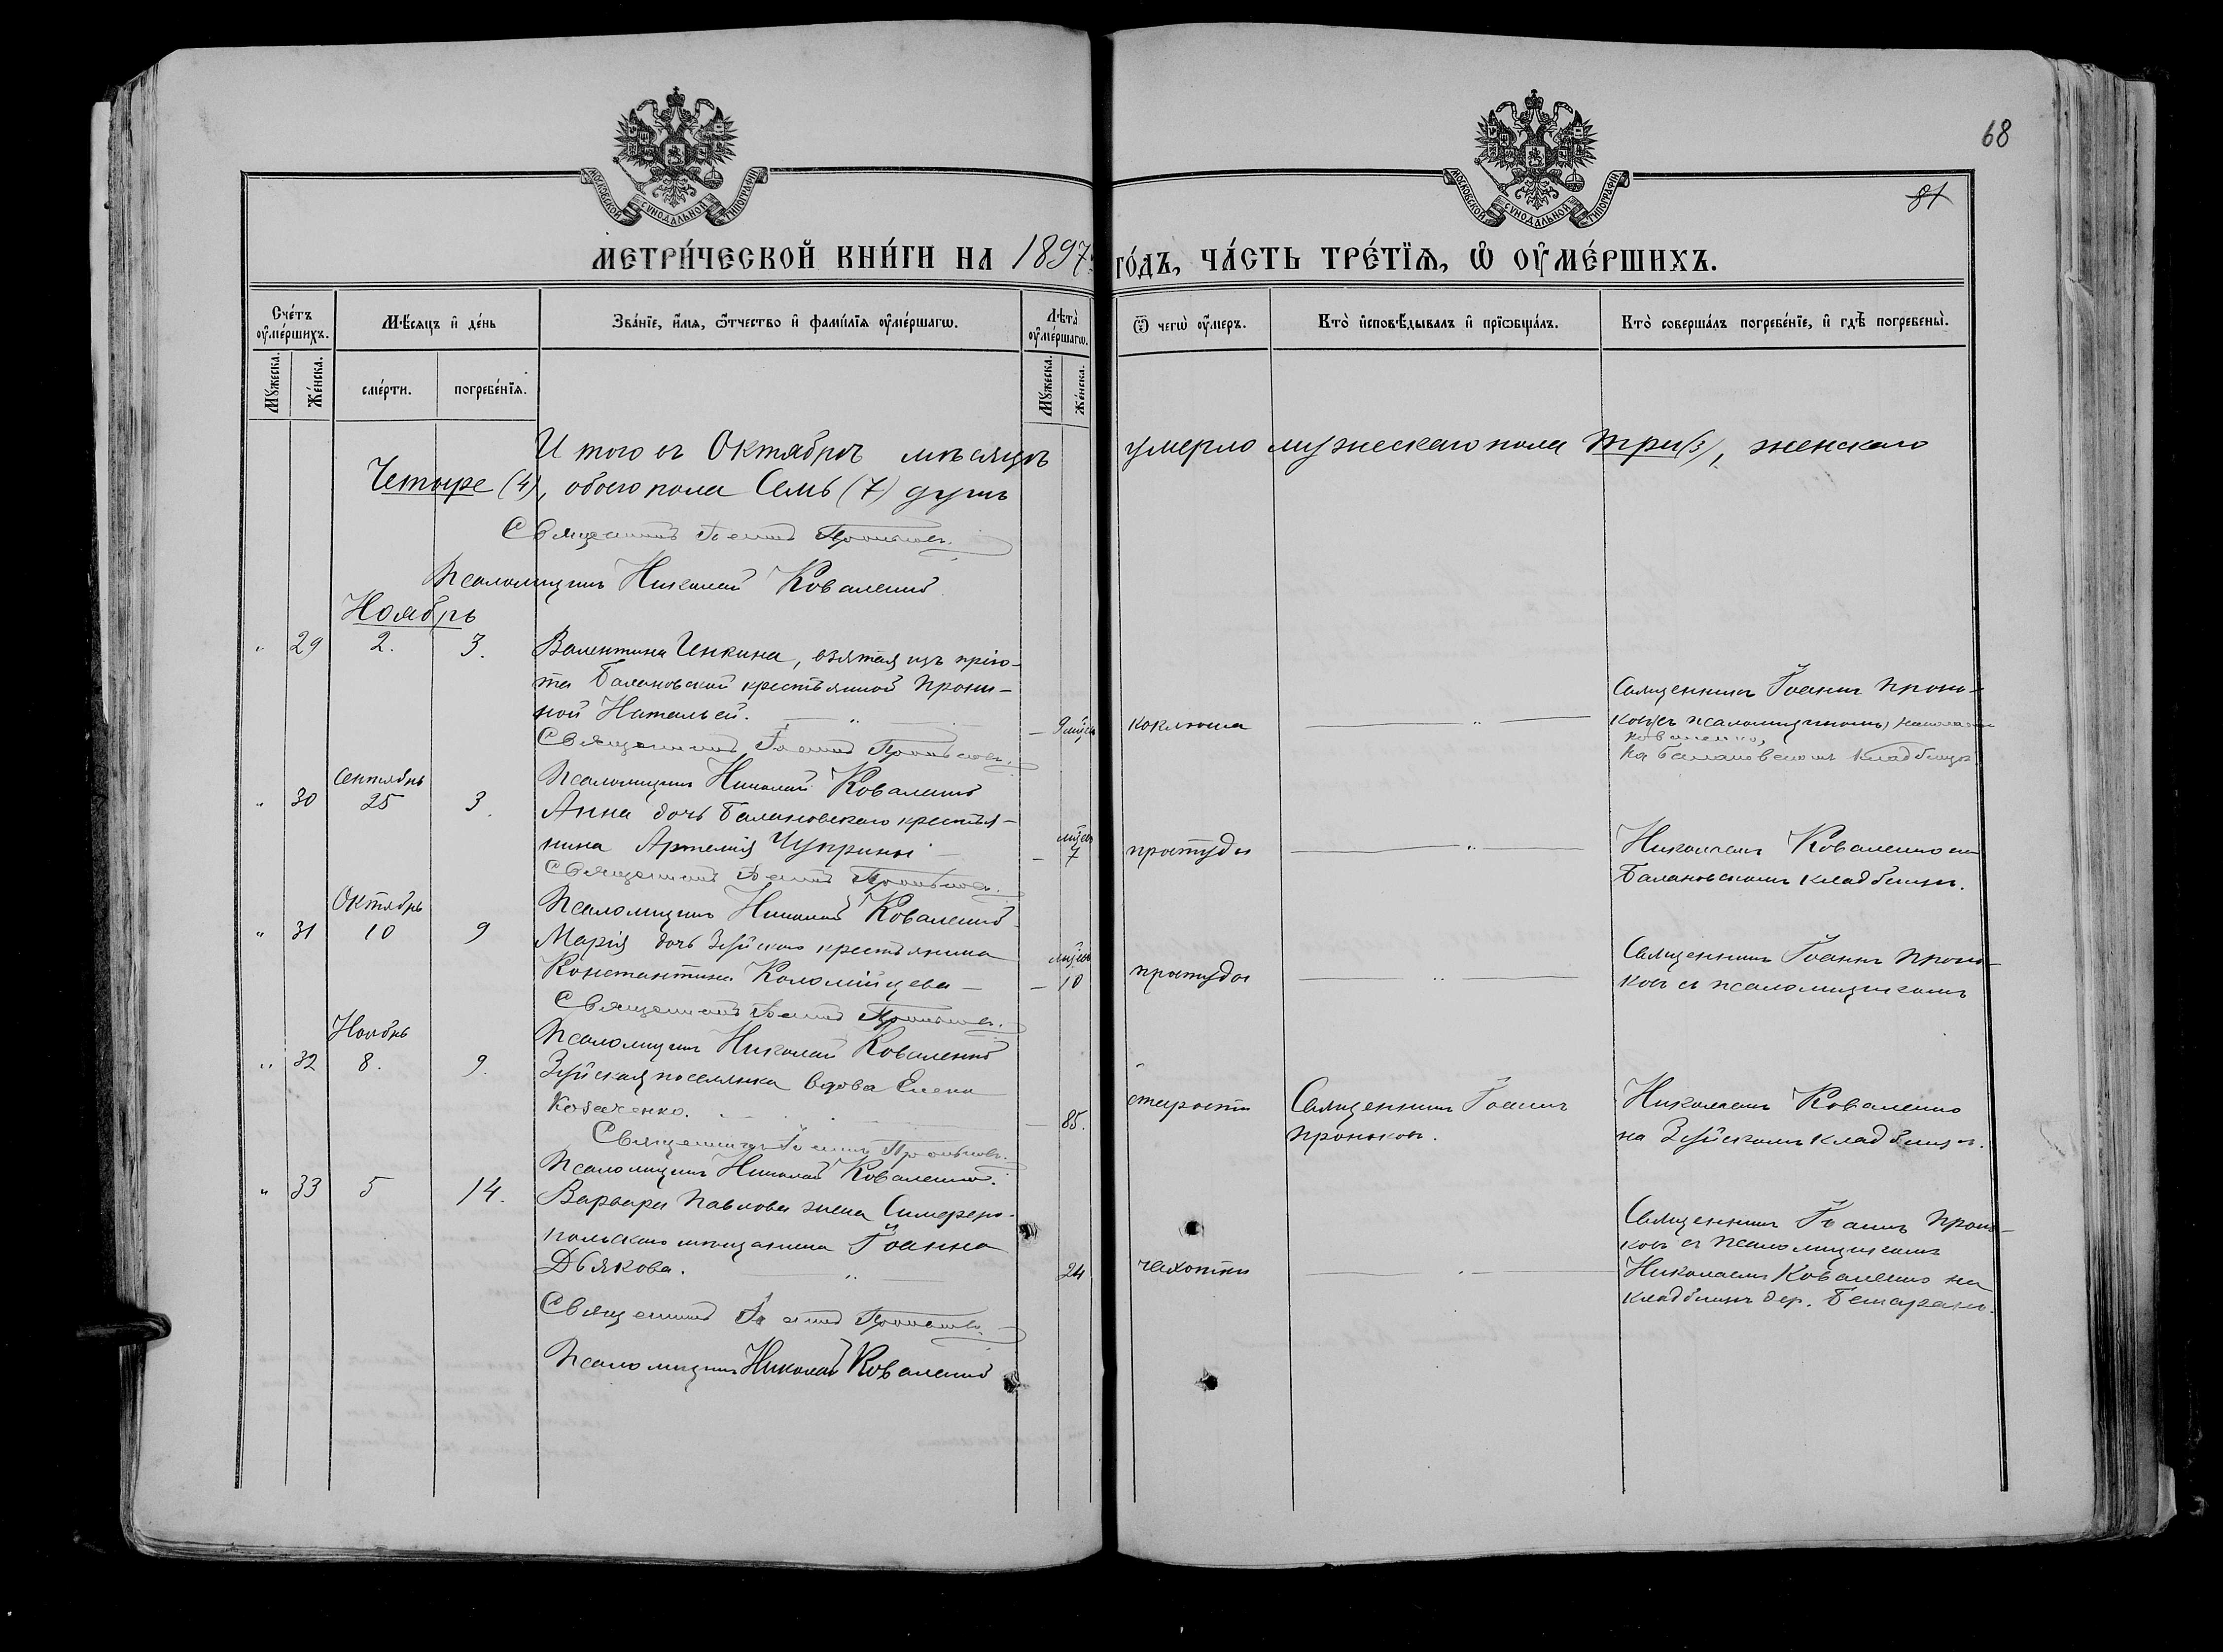 68
81
МОСКОВСКОЙ СѴНОДАЛЬНОЙ ТИПОГРАФІИ
МОСКОВСКОЙ СѴНОДАЛЬНОЙ ТИПОГРАФІИ
МЕТРИ́ЧЕСКОЙ КНИ́ГИ НА 1897 ГО́ДЪ, ЧА́СТЬ ТРЕ́ТЇѦ, Ѡ҆ ОУ҆МЕ́РШИХЪ.
Сче́тъ оу҆ме́ршихъ.
Мѣ́сяцъ и҆ де́нь
Зва́нїе, и҆́мѧ, ѻ҆́тчество и҆ фами́лїѧ оу҆ме́ршагѡ.
Лѣта̀ оу҆ме́ршагѡ.
Ѿ чегѡ̀ оу҆́меръ.
Кто̀ и҆сповѣ́дывалъ и҆ прїѡбща́лъ.
Кто̀ соверша́лъ погребе́нїе, и҆ гдѣ̀ погребены̀.
Мꙋ́жеска.
Же́нска.
сме́рти.
погребе́нїѧ.
Мꙋ́жеска.
Же́нска.
Итого въ Октябрѣ мѣсяцѣ умерло мужескаго пола три (3), женскаго
Четыре (4), обоего пола Семь (7) душъ
Священникъ Іоаннъ Проньковъ.
Псаломщикъ Николай Коваленко
Ноябрь
" 29 2. 3. Валентина Инкина, взятая изъ прію-
та Балановской крестьянкой Прони-
ной Натальей. — 9 мѣсяц коклюша — " —
Священникъ Іоаннъ Проньковъ съ псаломщикомъ Николаемъ
Коваленко,
на Балановскомъ кладбищѣ.
Священникъ Іоаннъ Проньковъ.
Псаломщикъ Николай Коваленко
Сентябрь
" 30 25 3. Анна дочь Балановскаго крестья-
нина Артемія Чуприны — мѣсяц 7 простуды — " —
Николаемъ Коваленко на
Балановскомъ кладбищѣ.
Священникъ Іоаннъ Проньковъ.
Псаломщикъ Николай Коваленко
Октябрь
" 31 10 9 Марія дочь Зуйскаго крестьянина
Константина Коломійцева — мѣсяц 10 простуды — " —
Священникъ Іоаннъ Пронь-
ковъ съ псаломщикомъ
Священникъ Іоаннъ Проньковъ.
Псаломщикъ Николай Коваленко
Ноябрь
" 32 8. 9. Зуйская поселянка вдова Елена
Козаченко. — 85. старости
Священникъ Іоаннъ
Проньковъ.
Николаемъ Коваленко
на Зуйскомъ кладбищѣ.
Священникъ Іоаннъ Проньковъ.
Псаломщикъ Николай Коваленко.
" 33 5 14. Варвара Павлова жена Симферо-
польскаго мѣщанина Іоанна
Дьякова. " 24 чахотки — " —
Священникъ Іоаннъ Пронь-
ковъ съ псаломщикомъ
Николаемъ Коваленко на
кладбищѣ дер.
Священникъ Іоаннъ Проньковъ.
Псаломщикъ Николай Коваленко